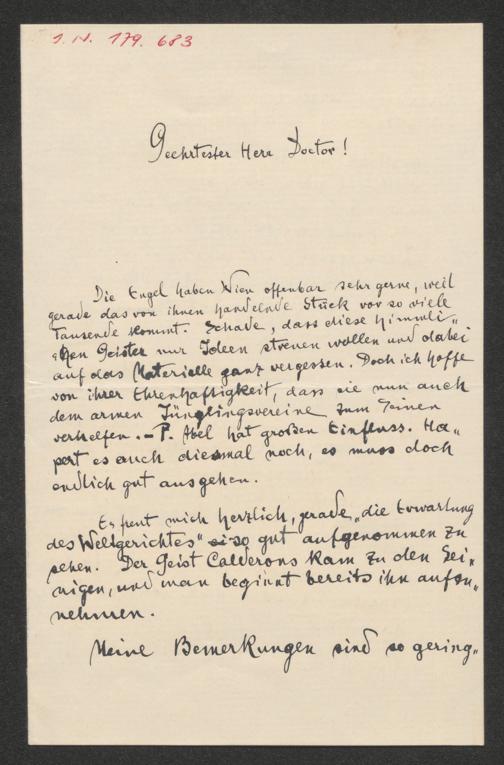 I.N. 179.683
Geehrtester Herr Doctor!
Die Engel haben Wien offenbar sehr gerne, weil
gerade das von ihnen handelnde Stück vor so viele
Tausende kommt. Schade, dass diese himmli„
schen Geister nur Ideen streuen wollen und dabei
auf das Materielle ganz vergessen. Doch ich hoffe
von ihrer Ehrenhaftigkeit, dass sie nun auch
dem armen Jünglingsvereine zum Seinen
verhelfen. – P. Abel hat großen Einfluss. Ha„
pert es auch diesmal noch, es muss doch
endlich gut ausgehen.
Es freut mich herzlich, gerade „die Erwartung
des Weltgerichtes" so gut aufgenommen zu
sehen. Der Geist Calderons kam zu den Sei„
nigen, und man beginnt bereits ihn aufzu„
nehmen.
Meine Bemerkungen sind so gering„